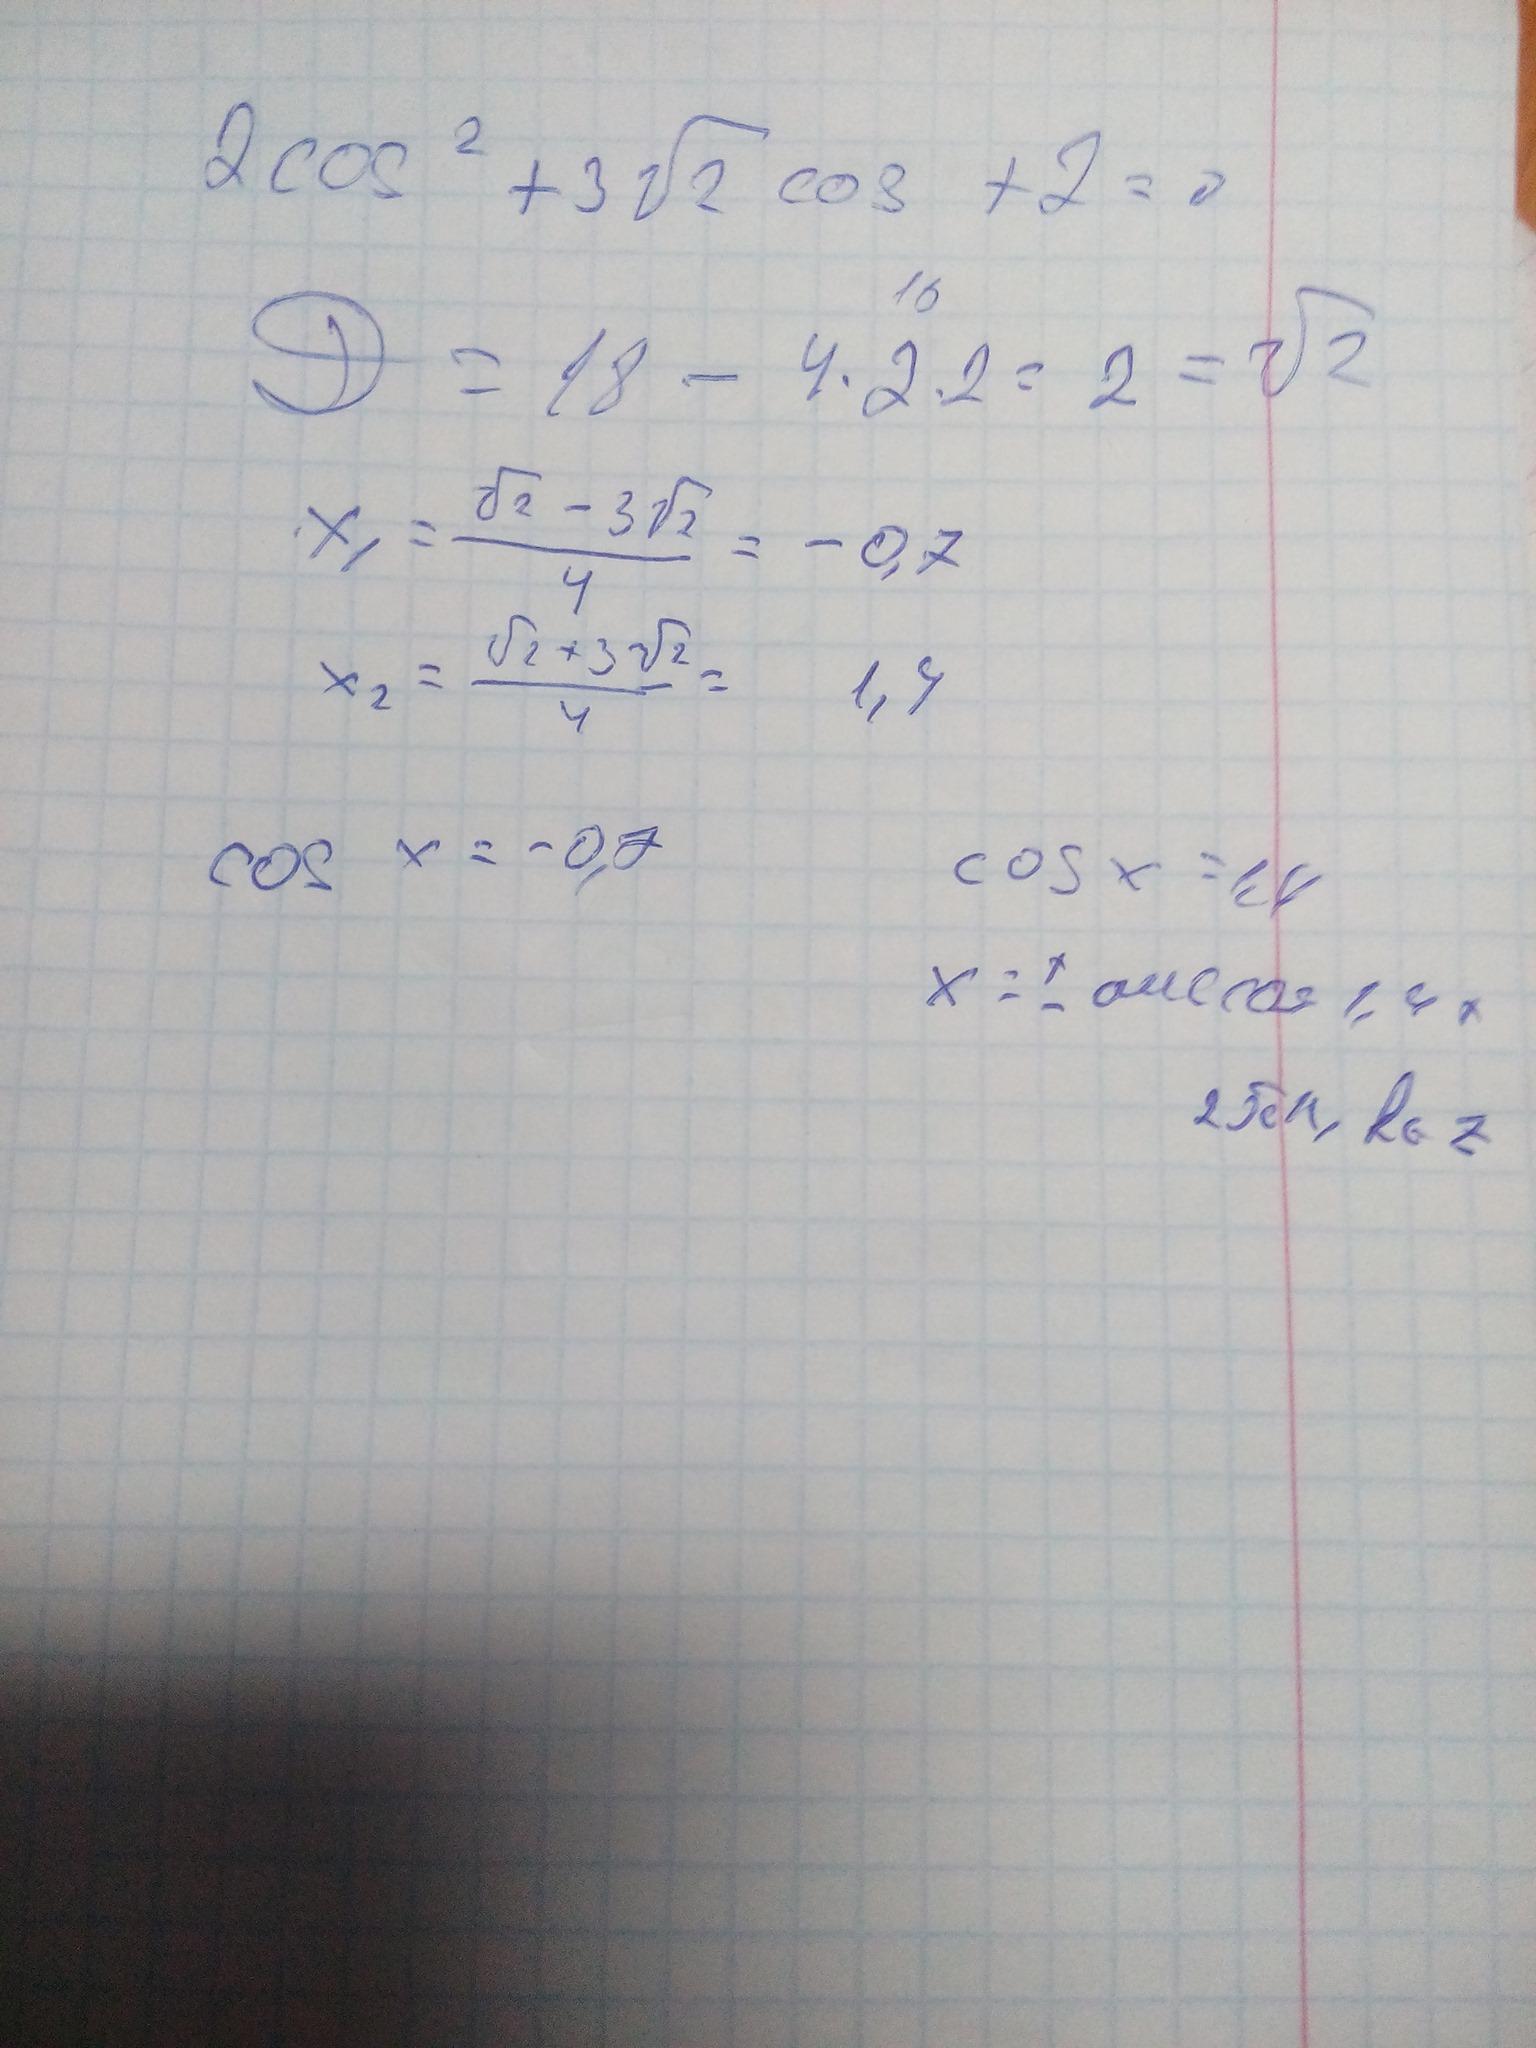 2cos² + 3√2 cos + 2 = 0
16
D = 18 - 4·2·2 = 2 = √2
x₁ = (√2 - 3√2)/4 = -0,7
x₂ = (√2 + 3√2)/4 = 1,4
cos x = -0,7
cos x = 1,4
x = ± arccos 1,4 +
2πn, n∈z